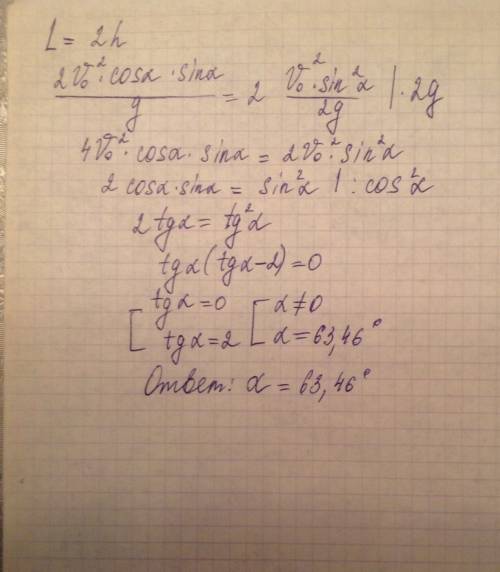 L = 2h
2V₀²·cosα·sinα / g = 2 V₀²·sin²α / 2g |·2g
4V₀²·cosα·sinα = 2V₀²·sin²α
2cosα·sinα = sin²α |:cos²α
2tgα = tg²α
tgα(tgα-2)=0
[ tgα=0 [ α≠0
tgα=2 α=63,46°
Ответ: α = 63,46°